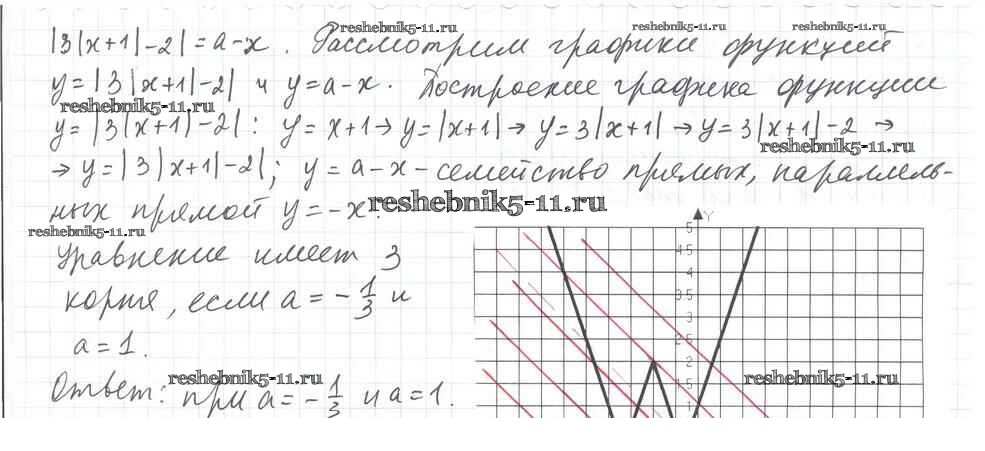 |3|x+1|-2|=a-x. Рассмотрим графики функций
y=|3|x+1|-2| и y=a-x. Построение графика функции
y=|3|x+1|-2|: y=x+1→y=|x+1|→y=3|x+1|→y=3|x+1|-2→
→y=|3|x+1|-2|; y=a-x-семейство прямых, параллель-
ных прямой y=-x.
Уравнение имеет 3
корня, если a=-1/3 и
a=1.
Ответ: при a=-1/3 и a=1.
Y
5
4.5
4
3.5
3
2
1.5
1
reshebnik5-11.ru
reshebnik5-11.ru
reshebnik5-11.ru
reshebnik5-11.ru
reshebnik5-11.ru
reshebnik5-11.ru
reshebnik5-11.ru
reshebnik5-11.ru
reshebnik5-11.ru